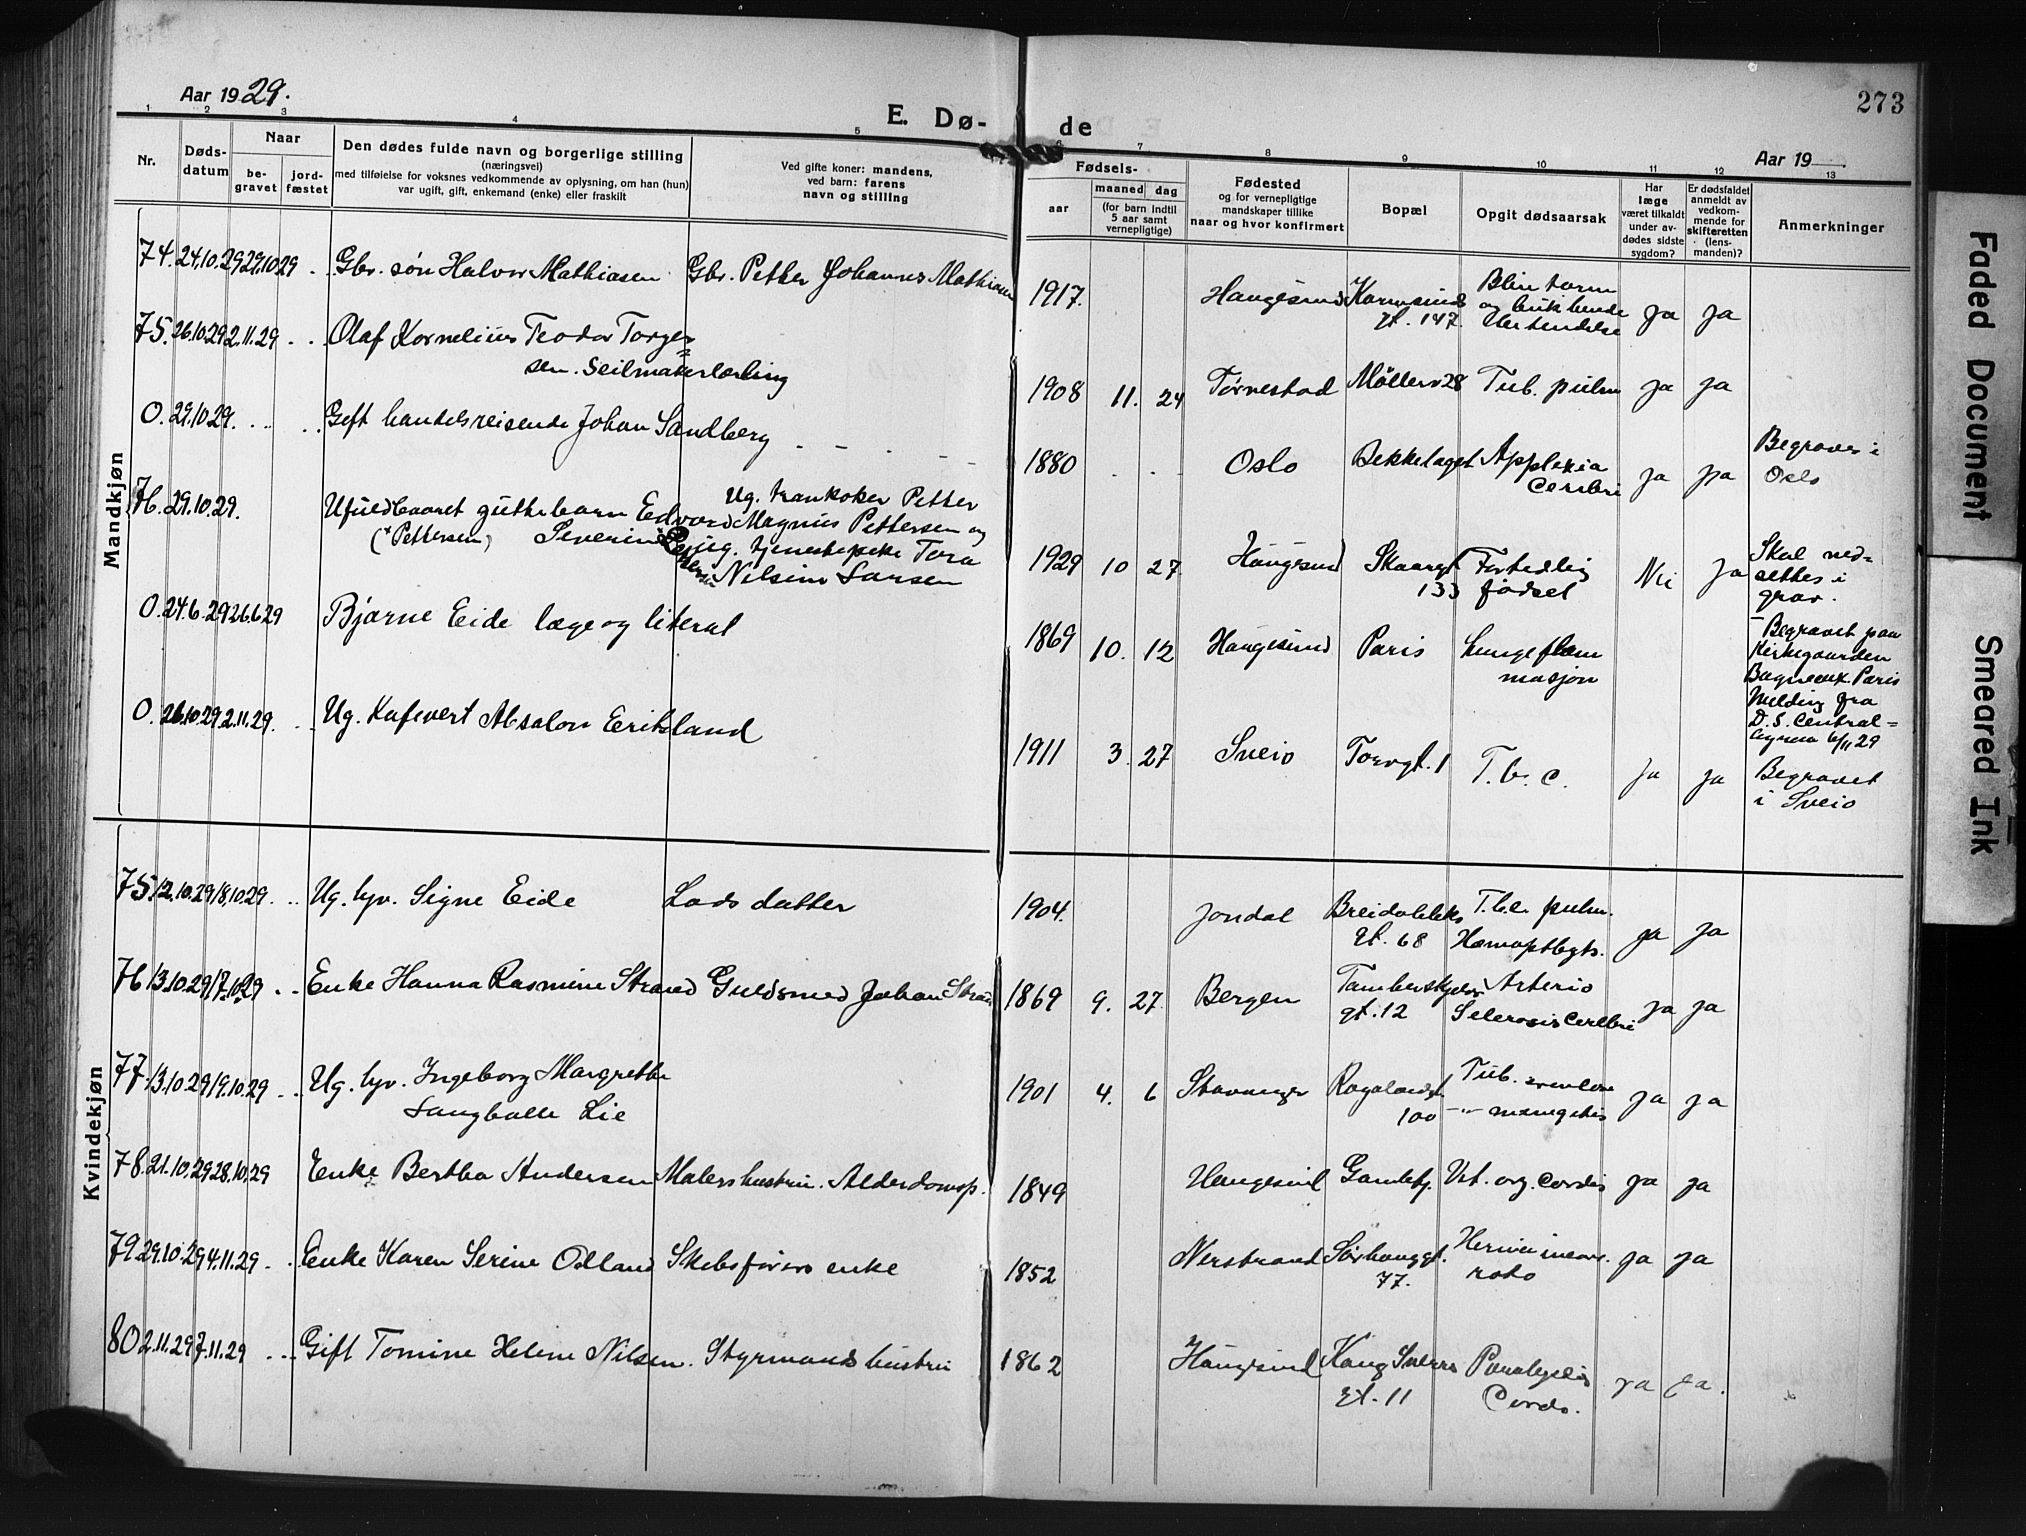 Aar 1929.
273
E. Dø-
de
Aar 19
1 2 3 4 5
6 7 8 9 10 11 12 13
Nr.
Døds-
datum
Naar
be-
gravet
jord-
fæstet
Den dødes fulde navn og borgerlige stilling
(næringsvei)
med tilføielse for voksnes vedkommende av oplysning, om han (hun)
var ugift, gift, enkemand (enke) eller fraskilt
Ved gifte koner: mandens,
ved barn: farens
navn og stilling
Fødsels-
aar
maaned dag
(for barn indtil
5 aar samt
vernepligtige)
Fødested
og for vernepligtige
mandskaper tillike
naar og hvor konfirmert
Bopæl
Opgit dødsaarsak
Har
læge
været tilkaldt
under av-
dødes sidste
sygdom?
Er dødsfaldet
anmeldt av
vedkom-
mende for
skifteretten
(lens-
manden)?
Anmerkninger
Mandkjøn
74. 24.10.29 29.10.29 Gbr. søn Halvor Mathiasen Gbr. Petter Johannes Mathiasen
1917. Haugesund Karmsunds
gt. 147. Blin tarm
og buk hende
betendelse ja ja
75. 26.10.29 2.11.29 Olaf Kornelius Teodor Torges=
sen. Seilmakerlærling
1908 11. 24 Tørnestad Møllerv 28 Tub. pulm ja ja
0. 29.10.29. Gift handelsreisende Johan Sandberg
1880 Oslo Bekkelaget Applexia
Cerebri ja ja Begraves i
Oslo
76. 29.10.29. Ufuldbaaret guttebarn Edvard
(*Pettersen) Severin
Ug. trankoker Petter
Magnus Pettersen og
ug. tjenestepike Tora
Nilsine Larsen
1929 10 27 Haugesund Skaargt
133 Fortidlig
fødsel Nei ja Skal ned=
settes i
grav.
0. 24.6.29 26.6.29 Bjarne Eide læge og literat
1869 10. 12 Haugesund Paris Lungeflam
masjon Begravet paa
Kirkegaarden
Bagneux. Paris
Melding fra
D. S. Central=
6/11 29
0. 26.10.29 2.11.29. Ug. Kafevert Absalon Eriksland
1911 3. 27 Sveio Torvgt. 1 T. b. c. ja ja Begravet
i Sveio
Kvindekjøn
75 12.10.29 18.10.29. Ug. hjv. Signe Eide Lods datter
1904. Jondal Breidableks
gt. 68 T.b.c. pulm.
Hæmoptbyts. ja ja
76 13.10.29 17.10.29 Enke Hanna Rasmine Strand Guldsmed Johan Strand
1869 9. 27. Bergen Tamberskjelvs
gt. 12 Arterio
Sclerosis Cerebri ja ja
77. 13.10.29 19.10.29 Ug. hjv. Ingeborg Margrethe
Langballe Lie
1901 4. 6 Stavanger Rogalandsgt
100 Tub.
-"- ja ja
78. 21.10.29 28.10.29 Enke Bertha Andersen Malers hustru. Alderdomsp.
1849 Haugesund Gamlehj. Vit. org. cordis ja ja
79. 29.10.29 4.11.29. Enke Karen Serine Odland Skibsførers enke
1852 Nerstrand Sørhauggt.
77. Hernia incar.
rata ja ja
80 2.11.29 7.11.29 Gift Tomine Heline Nilsen. Styrmands hustru
1862 Haugesund Kong Sverres
gt. 11 Paralysis
Cordis. ja ja.
Faded Document
Smeared Ink